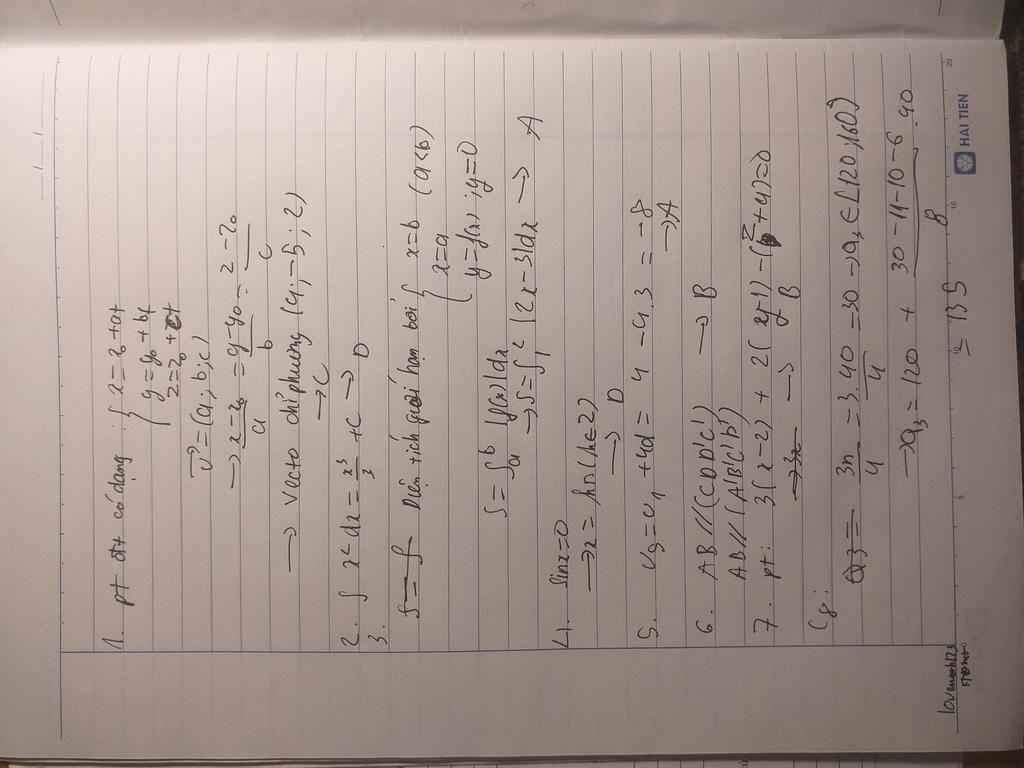 1. pt đtt có dạng : { x = x₀ + at
y = y₀ + bt
z = z₀ + ct
u⃗ = (a; b; c)
→ x - x₀ / a = y - y₀ / b = z - z₀ / c
→ vecto chỉ phương (4; -5; 2)
→ C
2. ∫ x² dx = x³/3 + C → D
3.
Diện tích giới hạn bởi { x = b (a<b)
x = a
y = f(x) ; y = 0
S = ∫ₐᵇ |f(x)| dx
→ S = ∫₁² |2x - 3| dx → A
4. sin x = 0
→ x = kπ (k ∈ Z)
→ D
5. u₅ = u₁ + 4d = 4 - 4.3 = -8
→ A
6. AB // (CDD'C')
AB // (A'B'C'D') → B
7. pt: 3(x-2) + 2(y-1) - (z+4) = 0
→ B
C8:
Q3 = 3n/4 = 3.40/4 = 30 → a₃ ∈ [120; 160)
→ Q₃ = 120 + 30-11-10-6 / 8 . 40
= 135
HAI TIEN
5 10 15 20